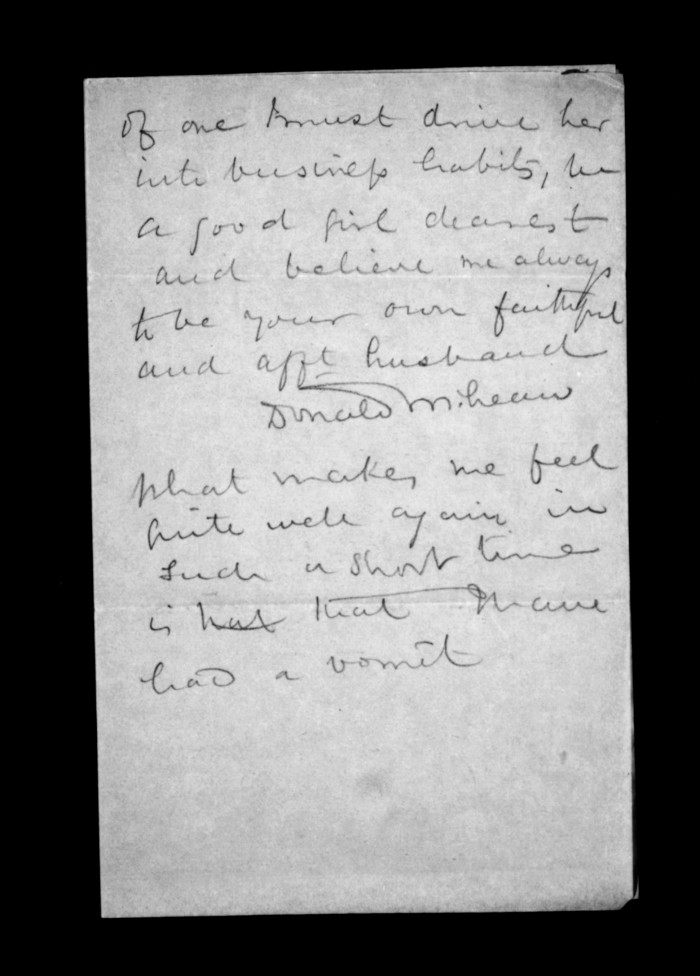 of one I must drive her
into business habits, be
a good girl dearest
and believe me always
to be your own faithful
and afft husband
Donald McLean
What makes me feel
quite well again in
such a short time
is hat that I have
had a vomit